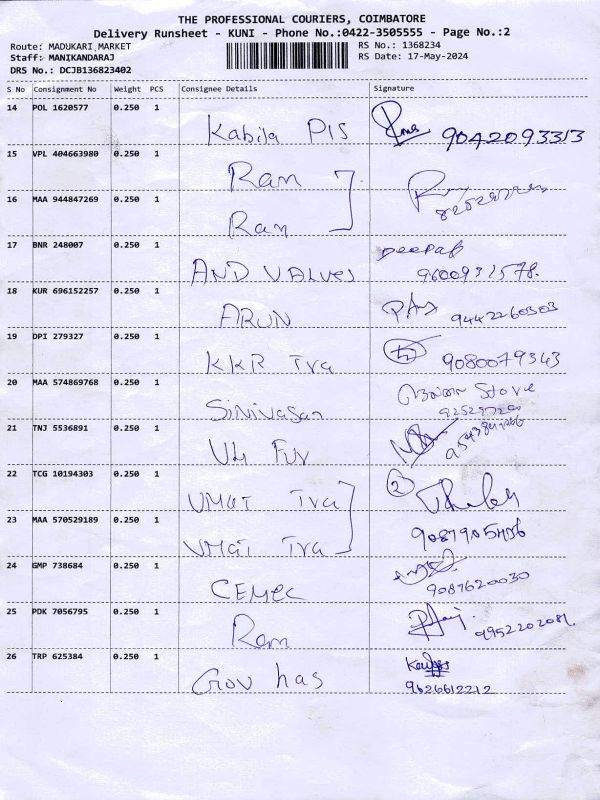 THE PROFESSIONAL COURIERS, COIMBATORE
Delivery Runsheet - KUNI - Phone No.:0422-3505555 - Page No.:2
Route: MADUKARI MARKET
Staff: MANIKANDARAJ
DRS No.: DCJB136823402
RS No.: 1368234
RS Date: 17-May-2024
S No Consignment No Weight PCS Consignee Details Signature
14 POL 1620577 0.250 1
Kabila PIS 9042093313
15 VPL 404663980 0.250 1
Ram
16 MAA 944847269 0.250 1
Ram
17 BNR 248007 0.250 1 Deepak
AND VALVES 9600931578.
18 KUR 696152257 0.250 1
ARUN 9442260303
19 DPI 279327 0.250 1
KKR Tra 9080079343
20 MAA 574869768 0.250 1 Stove
Sinivasan
21 TNJ 5536891 0.250 1
22 TCG 10194303 0.250 1 2
UMAI Tra
23 MAA 570529189 0.250 1
UMAI Tra
24 GMP 738684 0.250 1
CEMEC 9087620030
25 PDK 7056795 0.250 1
Ram 9952202081.
26 TRP 625384 0.250 1
Gov has 9626612212